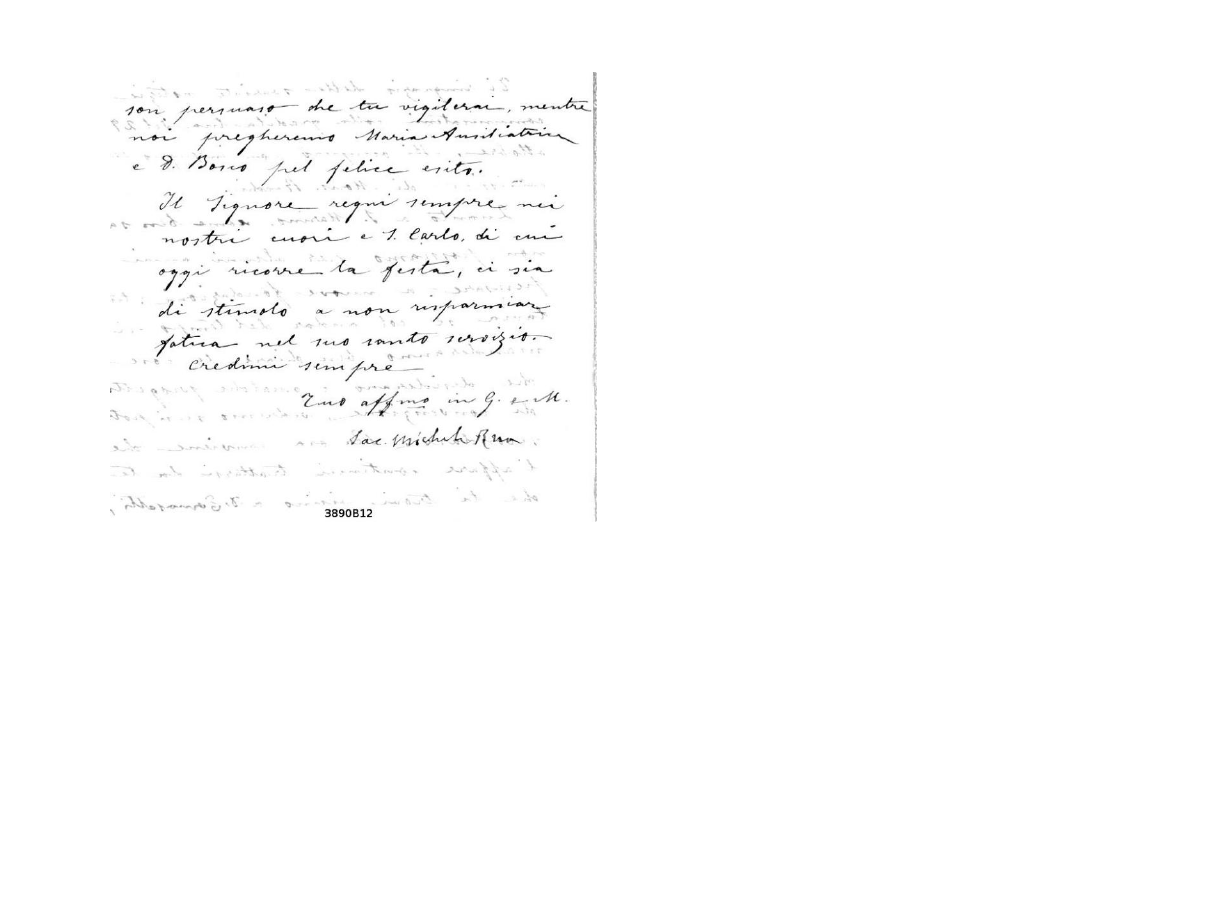 son persuaso che tu vigilerai, mentre
noi pregheremo Maria Ausiliatrice
e D. Bosco pel felice esito.
Il Signore regni sempre nei
nostri cuori e S. Carlo, di cui
oggi ricorre la festa, ci sia
di stimolo a non risparmiar
fatica nel suo santo servizio.
Credimi sempre
Tuo affmo in G. e M.
Sac. Michele Rua
3890B12